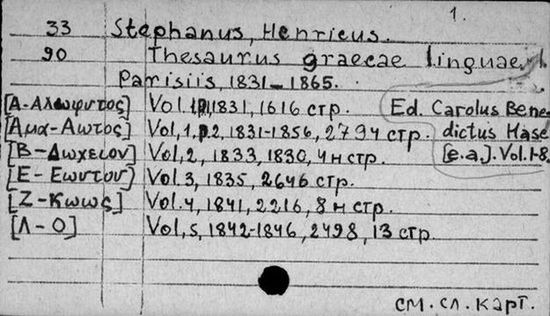 1.
33 Stephanus, Henricus.
90 Thesaurus graecae linguae,
Parisiis, 1831-1865.
[Α-Αλωφυτος] Vol. 1, p1, 1831, 1616 стр.
Ed. Carolus Bene-
[Αμα-Αωτος] Vol, 1, p2, 1831-1856, 2794 стр.
dictus Hase
[Β-Δωχειον] Vol, 2, 1833, 1830, 4 н стр.
[e.a.]. Vol. 1-8.
[Ε-Εωντου] Vol. 3, 1835, 2646 стр.
[Ζ-Κωως] Vol. 4, 1841, 2216, 8 н стр.
[Λ-Ο] Vol, 5, 1842-1846, 2498, 13 стр.
см. сл. карт.